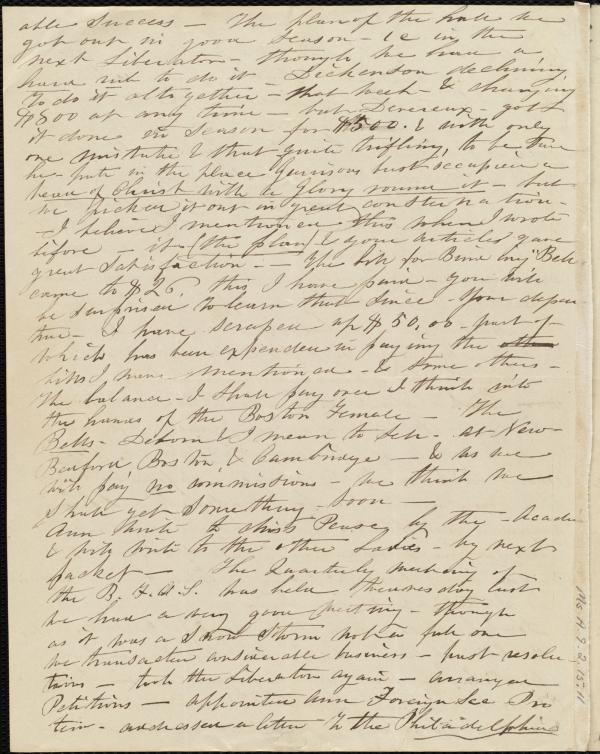 able Success - The plan of the hall we
got out in good Season - i e in the
next Liberator - though we had a
hard rub to do it - Dickenson declining
to do it altogether - that week - & charging
$800 at any time - but Devereux - got
it done in Season for $500. & with only
one mistake & that quite trifling, to be sure
he - put in the place Garrisons bust occupied a
head of Christ with a Glory round it - but
we picked it out in great consternation -
- I believe I mentioned this when I wrote
before - it (the plan) & your articles gave
great Satisfaction - The bill for Bind ing Bell
came to $26, this I have paid - you will
be surprised to learn that Since your depar
ture - I have scraped up $50,00 - part of
which has been expended in paying the
bills I have mentioned - & some others -
The balance - I shall pay over I think into
the hands of the Boston Female - The
Bells - Deborah & I mean to sell - at New-
Bedford Boston, & Cambridge - & as we
will pay no commissions - we think we
shall get Something - soon -
Ann wrote to Miss Pease, by the - Acadia
& will write to the other Ladies - by next
packet - The Quarterly meeting of
the B. F. A. S. was held Wednesday last
we had a very good meeting - though
as it was a Snow Storm not a full one
we transacted considerable business - past resolu
tions - took the Liberator again - arranged
Petitions - appointed Ann Foreign Sec Pro
tem - addressed a letter to the Philadelphia
Ms. A. 9. 2. 15. 11